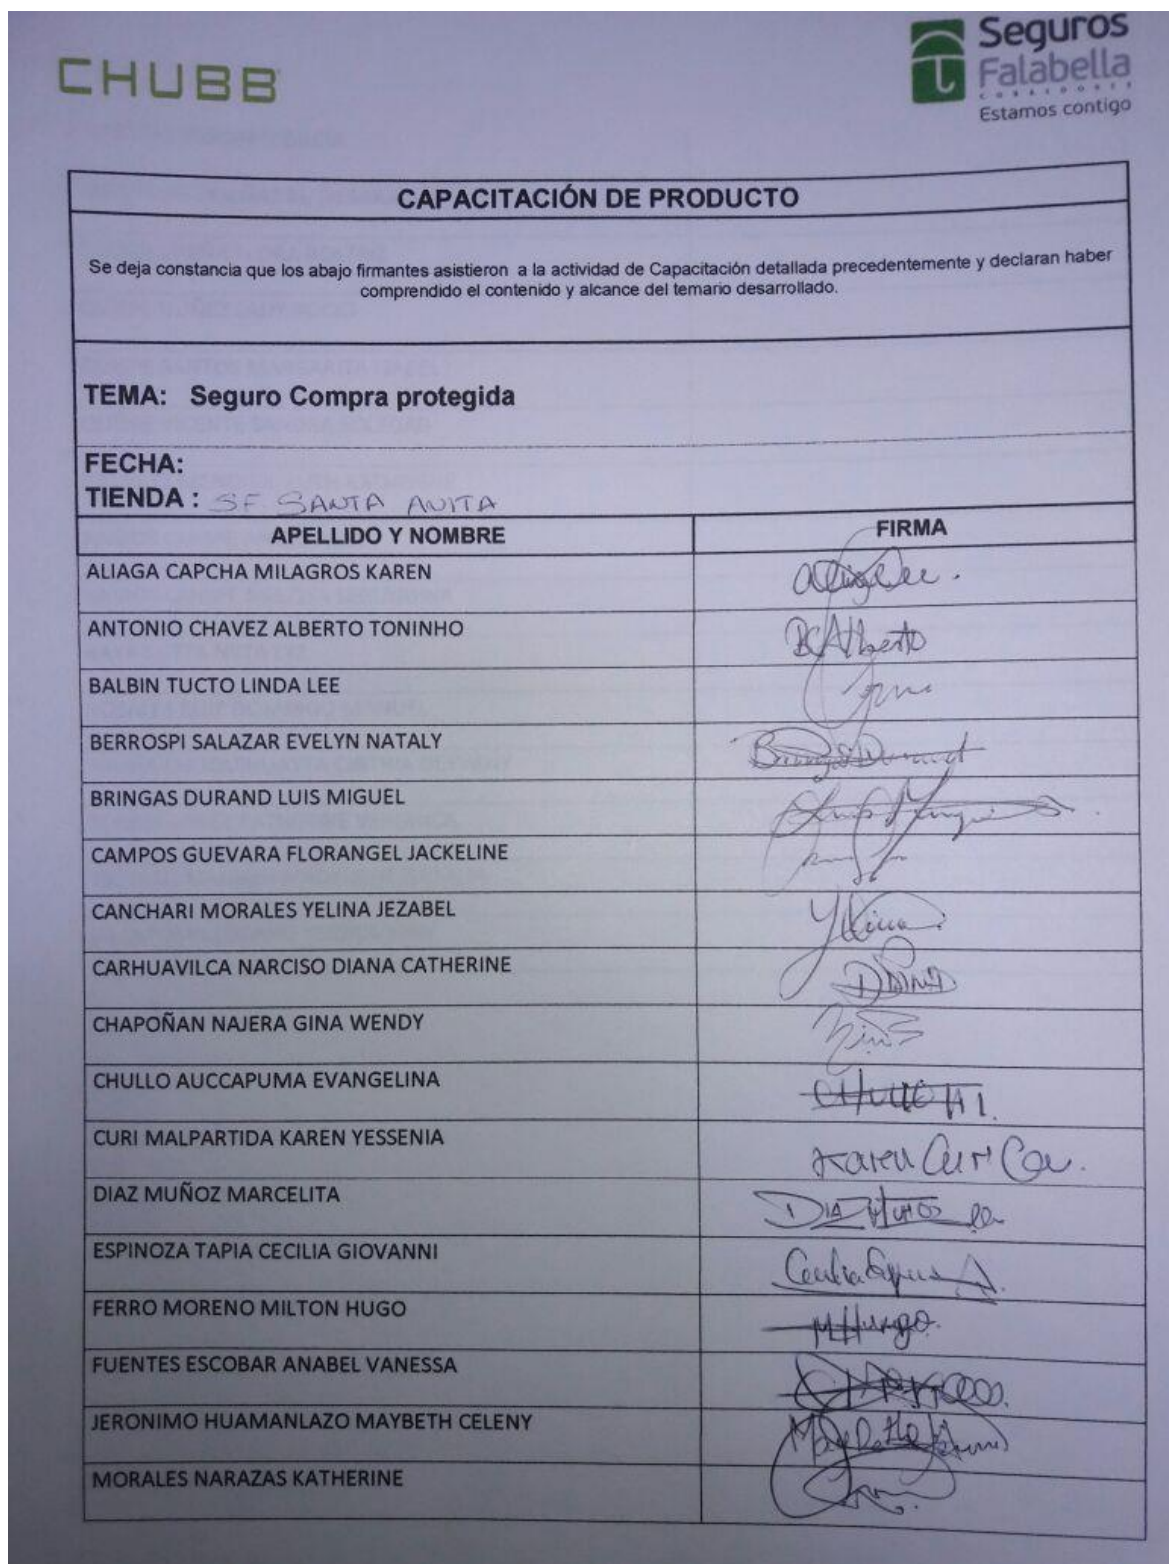 CHUBB
Seguros
Falabella
CORREDORES
Estamos contigo
CAPACITACIÓN DE PRODUCTO
Se deja constancia que los abajo firmantes asistieron a la actividad de Capacitación detallada precedentemente y declaran haber
comprendido el contenido y alcance del temario desarrollado.
TEMA: Seguro Compra protegida
FECHA:
TIENDA : SF SANTA ANITA
APELLIDO Y NOMBRE FIRMA
ALIAGA CAPCHA MILAGROS KAREN
ANTONIO CHAVEZ ALBERTO TONINHO Alberto
BALBIN TUCTO LINDA LEE
BERROSPI SALAZAR EVELYN NATALY Bringas Durand
BRINGAS DURAND LUIS MIGUEL
CAMPOS GUEVARA FLORANGEL JACKELINE
CANCHARI MORALES YELINA JEZABEL Yelina
CARHUAVILCA NARCISO DIANA CATHERINE Diana
CHAPOÑAN NAJERA GINA WENDY
CHULLO AUCCAPUMA EVANGELINA
CURI MALPARTIDA KAREN YESSENIA Karen Curi
DIAZ MUÑOZ MARCELITA
ESPINOZA TAPIA CECILIA GIOVANNI
FERRO MORENO MILTON HUGO MHugo
FUENTES ESCOBAR ANABEL VANESSA
JERONIMO HUAMANLAZO MAYBETH CELENY
MORALES NARAZAS KATHERINE